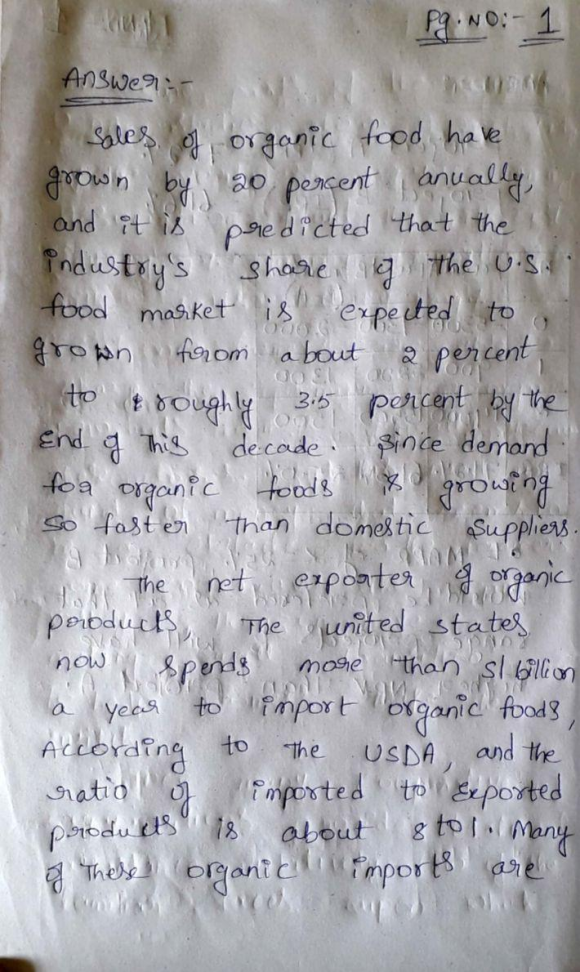 Pg.NO:- 1
Answer:-
Sales of organic food have
grown by 20 percent anually,
and it is predicted that the
industry's share of the U.S.
food market is expected to
grown from about 2 percent
to roughly 3.5 percent by the
End of This decade. Since demand
for organic foods is growing
so faster than domestic suppliers.
The net exporter of organic
products, The united states
now spends more than $1 billion
a year to import organic foods,
According to The USDA, and the
ratio of imported to Exported
products is about 8 to 1. Many
of These organic imports are